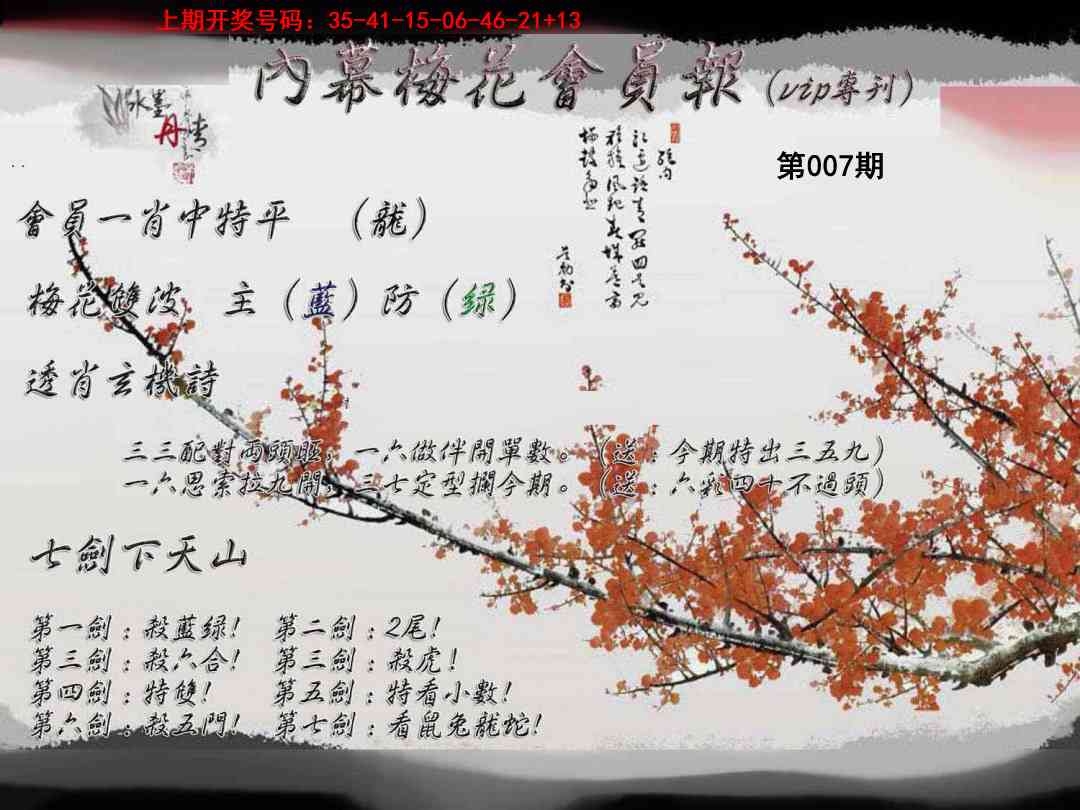 上期开奖号码：35-41-15-06-46-21+13
內幕梅花會員報（vip專刊）
水墨
丹青
第007期
會員一肖中特平　（龍）
梅花雙波　主（藍）防（绿）
透肖玄機詩
三三配對両頭旺，一六做伴開單數。（送：今期特出三五九）
一六思索拉九開，三七定型攔今期。（送：六彩四十不過頭）
七劍下天山
第一劍：殺藍绿！　第二劍：2尾！
第三劍：殺六合！　第三劍：殺虎！
第四劍：特雙！　第五劍：特看小數！
第六劍：殺五門！　第七劍：看鼠兔龍蛇！